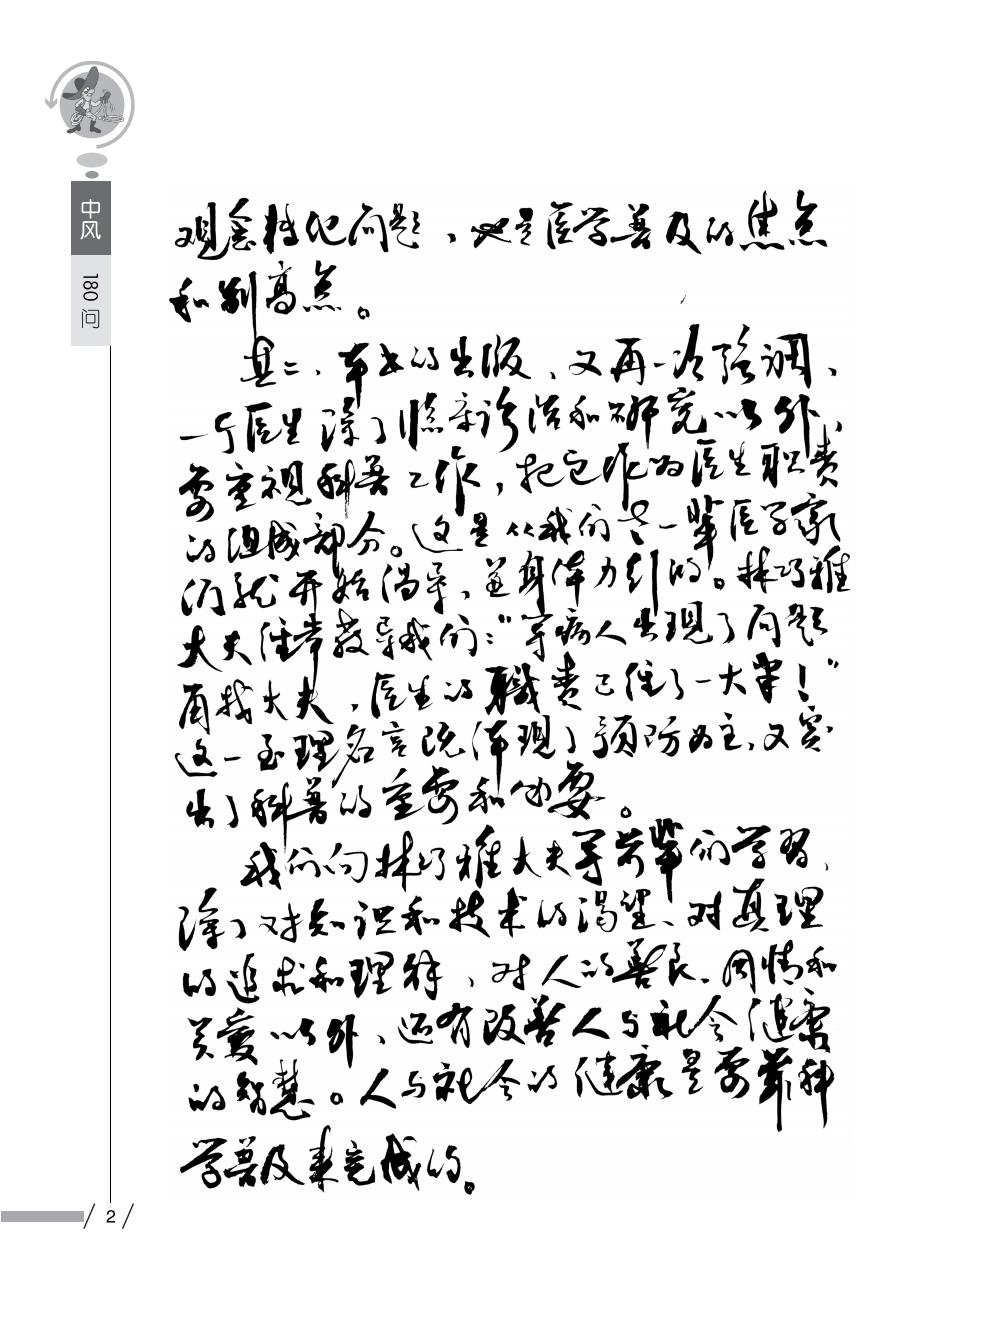 中风
180问
观念转化问题，也是医学普及的焦点
和制高点。
其二、本书的出版、又再一次强调、
一个医生除了临床诊治和研究以外、
要重视科普工作，把它作为医生职责
的组成部分。这是从我们老一辈医学家
们就开始倡导，并身体力行的。林巧稚
大夫经常教导我们："等病人出现了问题
再找大夫，医生的职责已经丢了一大半！"
这一至理名言既体现了预防为主，又突
出了科普的重要和必要。
我们向林巧稚大夫等前辈们学习、
除了对知识和技术的渴望、对真理
的追求和理解、对人的善良、同情和
关爱以外、还有改善人与社会健康
的智慧。人与社会的健康是要靠科
学普及来完成的。
2